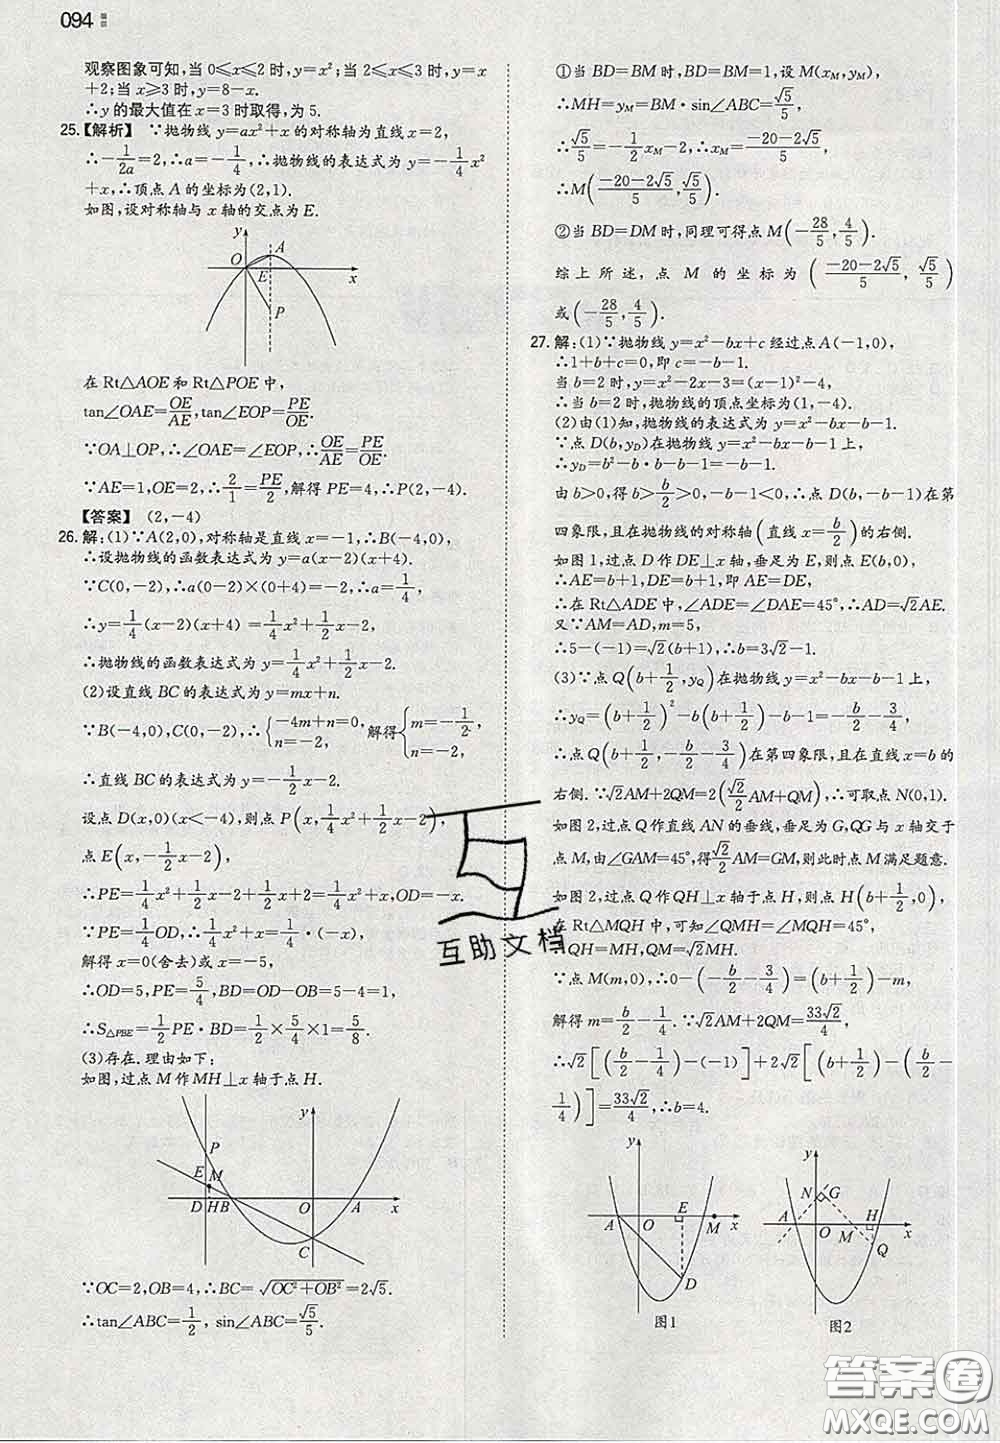 094
观察图象可知,当 0≤x≤2 时,y=x²;当 2≤x≤3 时,y=x
+2;当 x≥3 时,y=8-x.
∴y 的最大值在 x=3 时取得,为 5.
25.【解析】 ∵抛物线 y=ax²+x 的对称轴为直线 x=2,
∴-1/2a=2,∴a=-1/4,∴抛物线的表达式为 y=-1/4x²
+x,∴顶点 A 的坐标为(2,1).
如图,设对称轴与 x 轴的交点为 E.
y
A
O
E
x
P
在 Rt△AOE 和 Rt△POE 中,
tan∠OAE=OE/AE,tan∠EOP=PE/OE.
∵OA⊥OP,∴∠OAE=∠EOP,∴OE/AE=PE/OE.
∵AE=1,OE=2,∴2/1=PE/2,解得 PE=4,∴P(2,-4).
【答案】 (2,-4)
26.解:(1)∵A(2,0),对称轴是直线 x=-1,∴B(-4,0),
∴设抛物线的函数表达式为 y=a(x-2)(x+4).
∵C(0,-2),∴a(0-2)×(0+4)=-2,∴a=1/4,
∴y=1/4(x-2)(x+4)=1/4x²+1/2x-2,
∴抛物线的函数表达式为 y=1/4x²+1/2x-2.
(2)设直线 BC 的表达式为 y=mx+n.
∵B(-4,0),C(0,-2),∴{-4m+n=0, n=-2, 解得{m=-1/2, n=-2,
∴直线 BC 的表达式为 y=-1/2x-2.
设点 D(x,0)(x<-4),则点 P(x,1/4x²+1/2x-2),
点 E(x,-1/2x-2),
∴PE=1/4x²+1/2x-2+1/2x+2=1/4x²+x,OD=-x.
∵PE=1/4OD,∴1/4x²+x=1/4·(-x),
解得 x=0(舍去)或 x=-5,
∴OD=5,PE=5/4,BD=OD-OB=5-4=1,
∴S△PBE=1/2PE·BD=1/2×5/4×1=5/8.
(3)存在.理由如下:
如图,过点 M 作 MH⊥x 轴于点 H.
y
P
E
M
D
H
B
O
A
x
C
∵OC=2,OB=4,∴BC=√(OC²+OB²)=2√5.
∴tan∠ABC=1/2, sin∠ABC=√5/5.
①当 BD=BM 时,BD=BM=1,设 M(xM,yM),
∴MH=yM=BM·sin∠ABC=√5/5,
∴√5/5=-1/2xM-2,∴xM=(-20-2√5)/5,
∴M((-20-2√5)/5,√5/5).
②当 BD=DM 时,同理可得点 M(-28/5,4/5).
综上所述,点 M 的坐标为((-20-2√5)/5,√5/5)
或(-28/5,4/5).
27.解:(1)∵抛物线 y=x²-bx+c 经过点 A(-1,0),
∴1+b+c=0,即 c=-b-1.
当 b=2 时,y=x²-2x-3=(x-1)²-4,
∴当 b=2 时,抛物线的顶点坐标为(1,-4).
(2)由(1)知,抛物线的表达式为 y=x²-bx-b-1.
∵点 D(b,yD)在抛物线 y=x²-bx-b-1 上,
∴yD=b²-b·b-b-1=-b-1.
由 b>0,得 b>b/2>0,-b-1<0,∴点 D(b,-b-1)在第
四象限,且在抛物线的对称轴(直线 x=b/2)的右侧.
如图 1,过点 D 作 DE⊥x 轴,垂足为 E,则点 E(b,0),
∴AE=b+1,DE=b+1,即 AE=DE,
∴在 Rt△ADE 中,∠ADE=∠DAE=45°,∴AD=√2AE.
又∵AM=AD,m=5,
∴5-(-1)=√2(b+1),∴b=3√2-1.
(3)∵点 Q(b+1/2,yQ)在抛物线 y=x²-bx-b-1 上,
∴yQ=(b+1/2)²-b(b+1/2)-b-1=-b/2-3/4,
∴点 Q(b+1/2,-b/2-3/4)在第四象限,且在直线 x=b 的
右侧.∵√2AM+2QM=2(√2/2AM+QM),∴可取点 N(0,1).
如图 2,过点 Q 作直线 AN 的垂线,垂足为 G,QG 与 x 轴交于
点 M,由∠GAM=45°,得√2/2AM=GM,则此时点 M 满足题意.
如图 2,过点 Q 作 QH⊥x 轴于点 H,则点 H(b+1/2,0),
在 Rt△MQH 中,可知∠QMH=∠MQH=45°,
QH=MH,QM=√2MH.
∵点 M(m,0),∴0-(-b/2-3/4)=(b+1/2)-m,
解得 m=b/2-1/4.∵√2AM+2QM=33√2/4,
∴√2[(b/2-1/4)-(-1)]+2√2[(b+1/2)-(b/2-
1/4)]=33√2/4,∴b=4.
y
A
O
E
M
x
D
图1
y
N
G
A
O
M
H
x
Q
图2
互助文档
答案圈
MXQE.COM